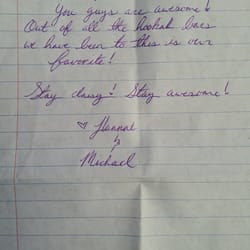 You guys are awesome!
Out of all the hookah bars
we have been to this is our
favorite!
Stay classy! Stay awesome!
♡ Hannah
&
Michael